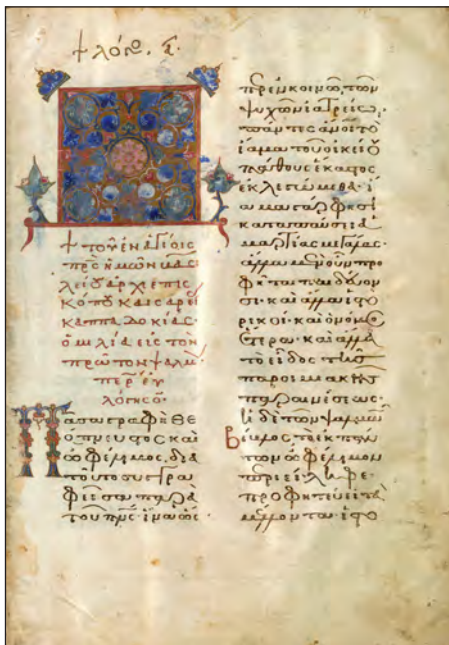 + λόγο, α·
+ τοῦ ἐν ἁγίοις
πρς ἡμῶν βασι
λείου ἀρχιεπισ
κόπου καισαρεί
καππαδοκίας·
ὁμιλία εἰς τὸν
πρῶτον ψαλμ
Πᾶσα γραφὴ θε
όπνευστος καὶ
ὠφέλιμος, διὰ
τοῦτο συγγρα
φεῖσα παρὰ
τοῦ πνς· ἵν' ὥσ
περ ἐν κοινῷ τῶν
ψυχῶν ἰατρείῳ,
πάντες ἄνοι τὸ
ἴαμα τοῦ οἰκείου
πάθους ἕκαστος
ἐκλεγώμεθα· ἴ
αμα γάρ φησι
καταπαύσει ἁ
μαρτίας μεγάλας·
ἄλλα μὲν οὖν προ
φῆται παιδεύου
σι· καὶ ἄλλα ἱστο
ρικοί· καὶ ὁ νόμος
ἕτερα· καὶ ἄλλα
τὸ εἶδος τῆς
παροιμιακῆς
παραινέσεως·
ἡ δὲ τῶν ψαλμῶν
βίβλος, τὸ ἐκ πάν
των ὠφέλιμον
περιείληφε·
προφητεύει τὰ
μέλλοντα· ἱστο